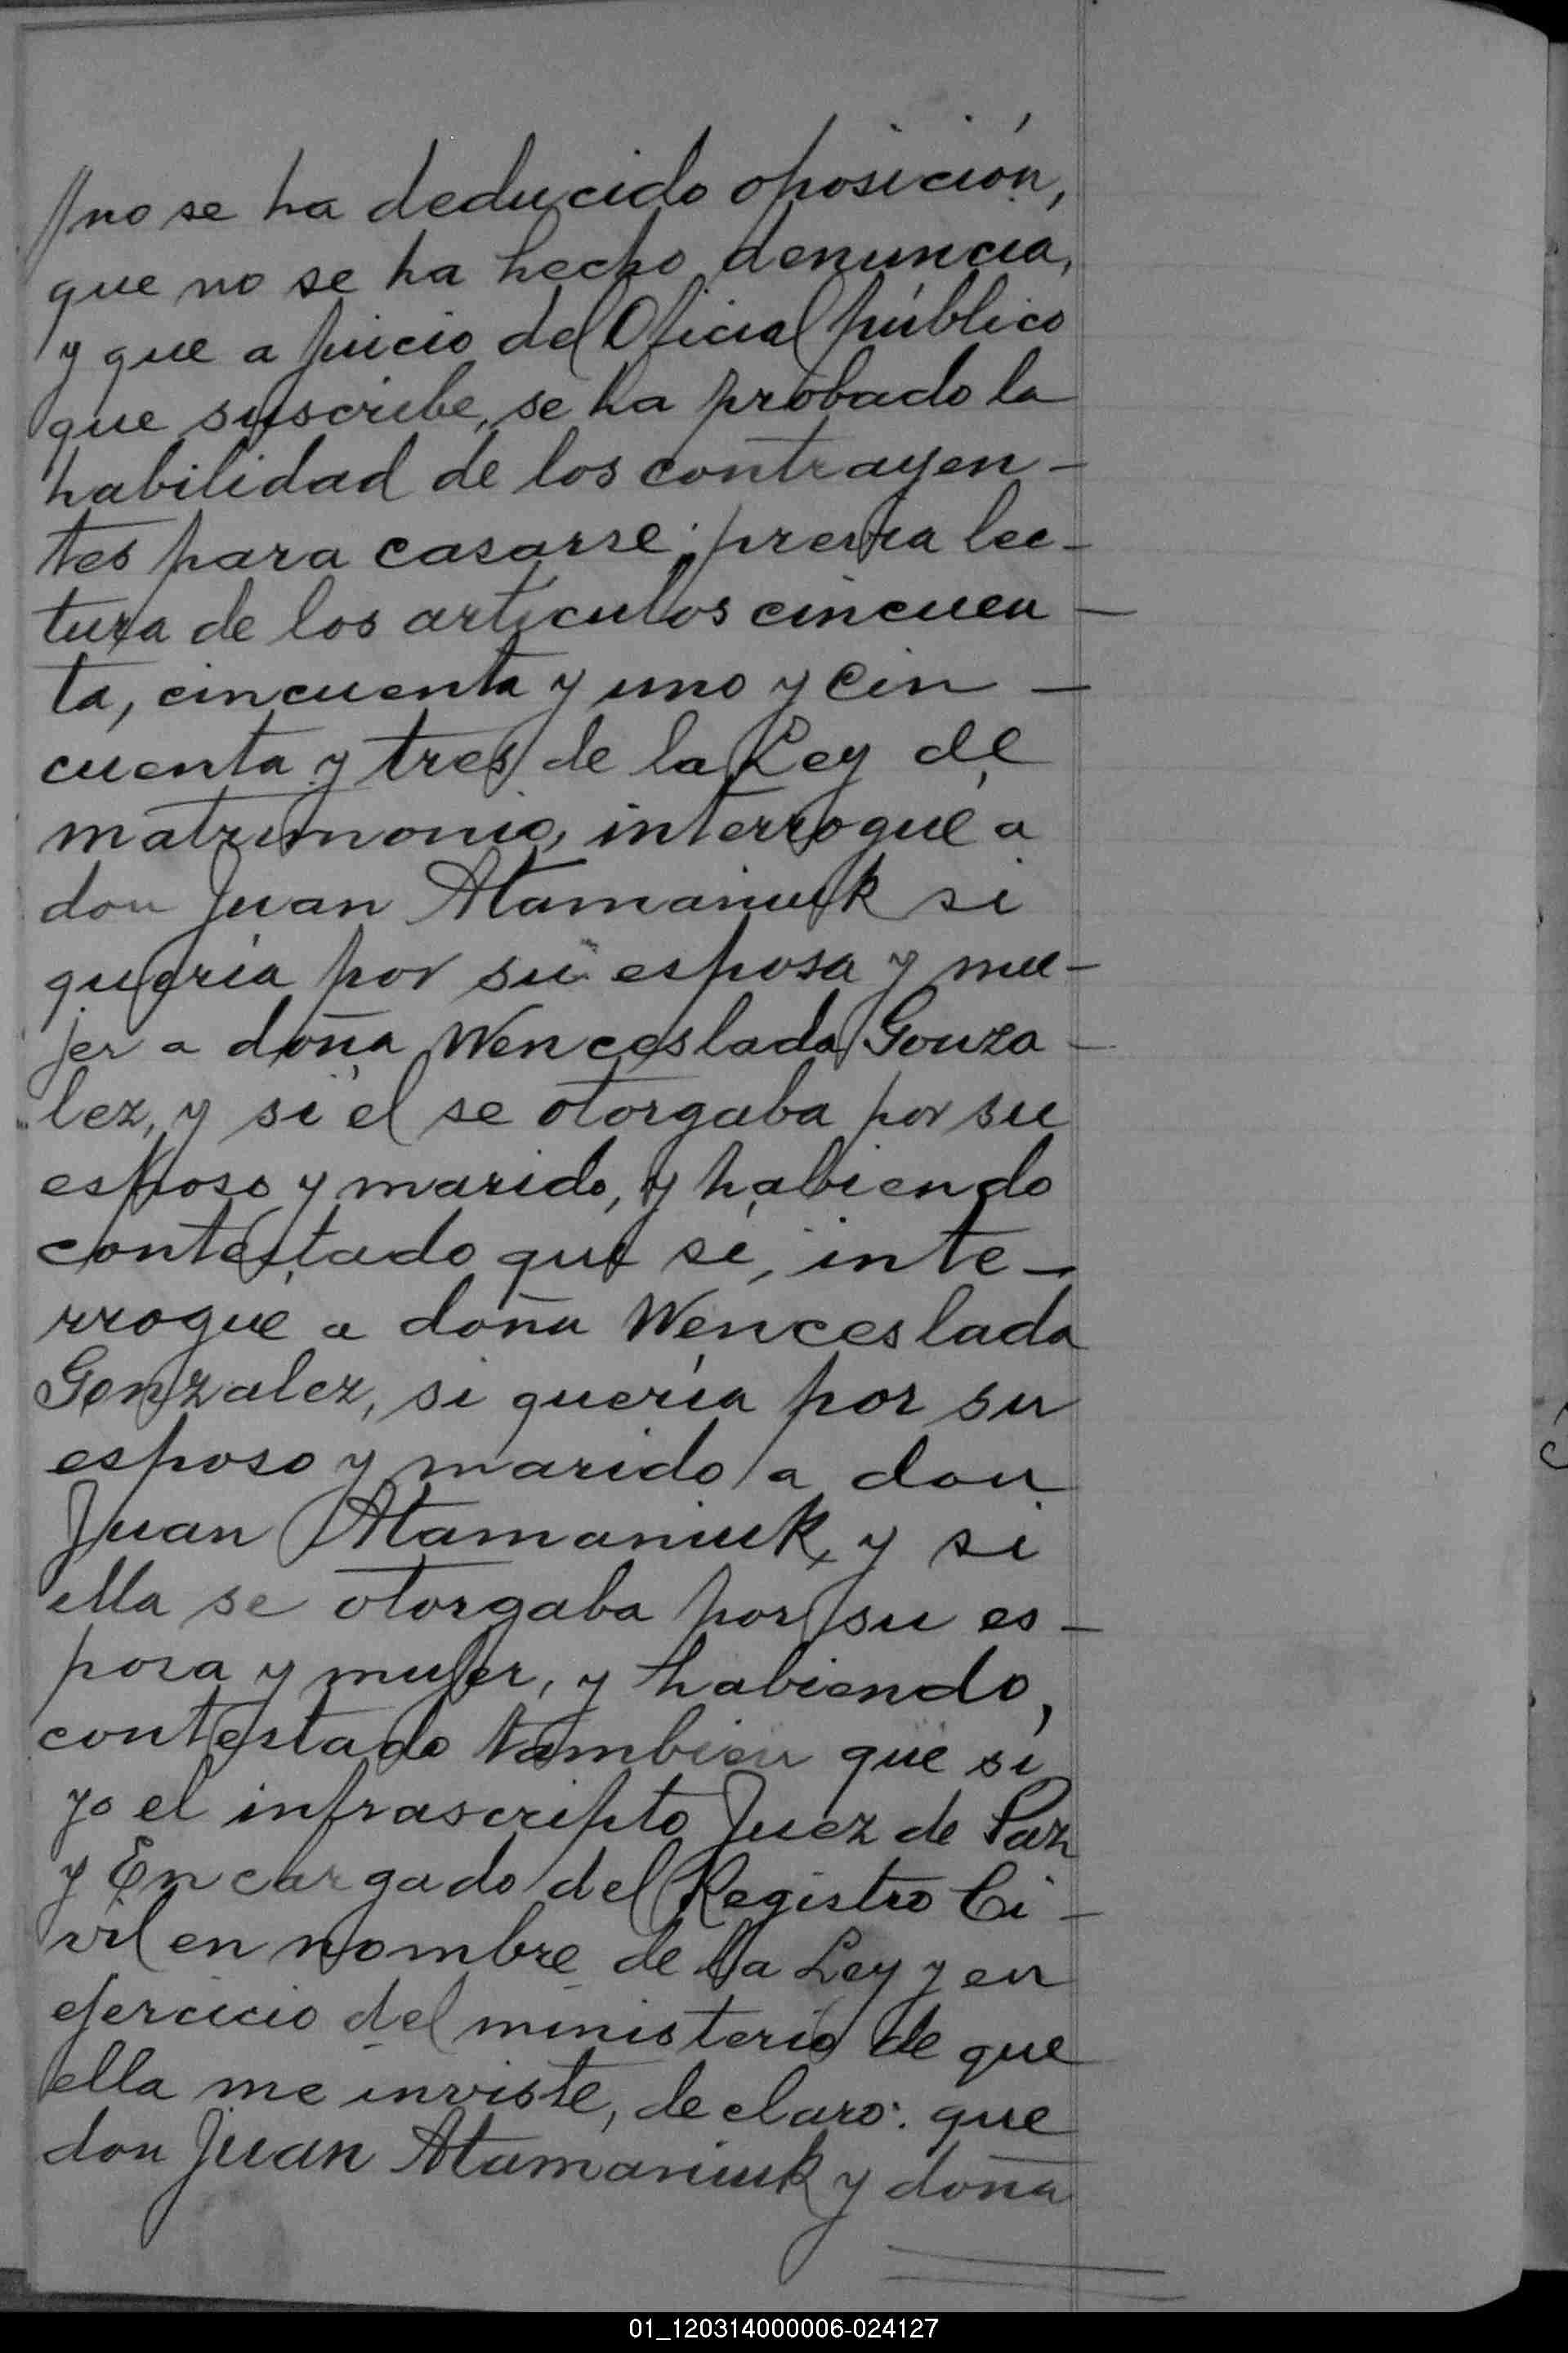 // no se ha deducido oposición,
que no se ha hecho denuncia,
y que a juicio del Oficial público
que suscribe, se ha probado la
habilidad de los contrayen-
tes para casarse: previa lec-
tura de los artículos cincuen-
ta, cincuenta y uno y cin-
cuenta y tres de la Ley de
matrimonio, interrogué a
don Juan Atamaniuk si
quería por su esposa y mu-
jer a doña Wenceslada Gonza-
lez, y si él se otorgaba por su
esposo y marido, y habiendo
contestado que sí, inte-
rrogué a doña Wenceslada
Gonzalez, si quería por su
esposo y marido a don
Juan Atamaniuk, y si
ella se otorgaba por su es-
posa y mujer, y habiendo,
contestado tambien que sí
yo el infrascripto Juez de Paz
y Encargado del Registro Ci-
vil en nombre de la Ley y en
ejercicio del ministerio de que
ella me inviste, declaro: que
don Juan Atamaniuk y doña
01_120314000006-024127